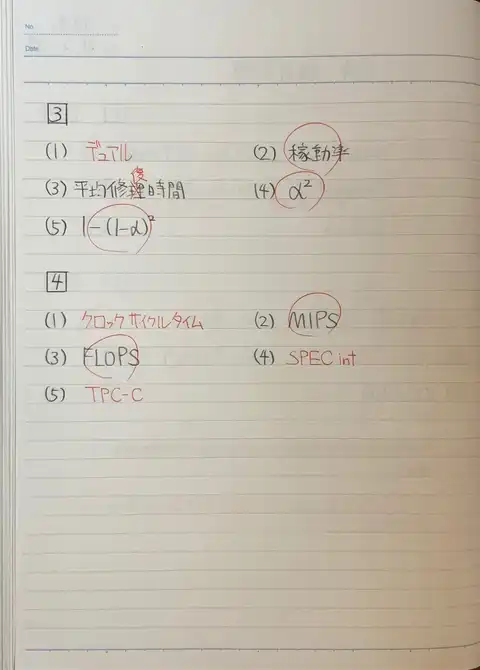 No.
Date
3
(1) デュアル (2) 稼動率
復
(3) 平均修理時間 (4) α²
(5) 1-(1-α)²
4
(1) クロックサイクルタイム (2) MIPS
(3) FLOPS (4) SPECint
(5) TPC-C